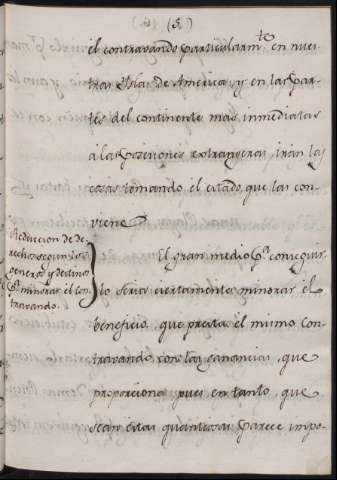 (5.)
el contravando particularm.te en nues-
tras Yslas de America, y en las par-
tes del continente mas inmediatas
á las posesiones extrangeras, irán las
cosas tomando el estado, que las con-
viene.
Reduccion de de-
rechos segun los
generos y destinos
p.a minorar el con-
travando.
El gran medio p.a conseguir-
lo seria ciertamente minorar el
beneficio, que presta el mismo con-
travando, con las ganancias, que
proporciona pues en tanto, que
sean estas quantiosas, parece impo-